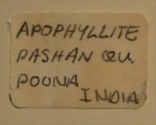 APOPHYLLITE
PASHAN QU.
POONA
INDIA